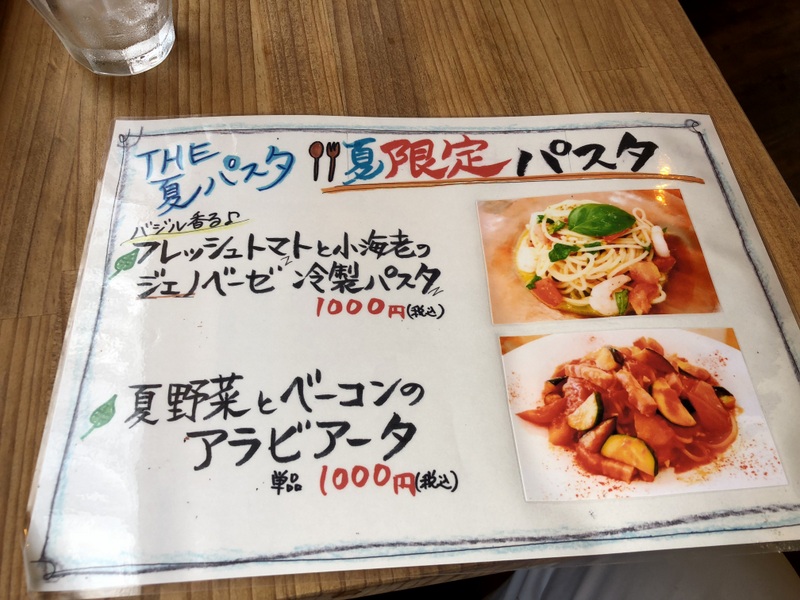 THE
夏パスタ
夏限定パスタ
バジル香る♪
フレッシュトマトと小海老の
ジェノベーゼ 冷製パスタ
1000円(税込)
夏野菜とベーコンの
アラビアータ
単品 1000円(税込)